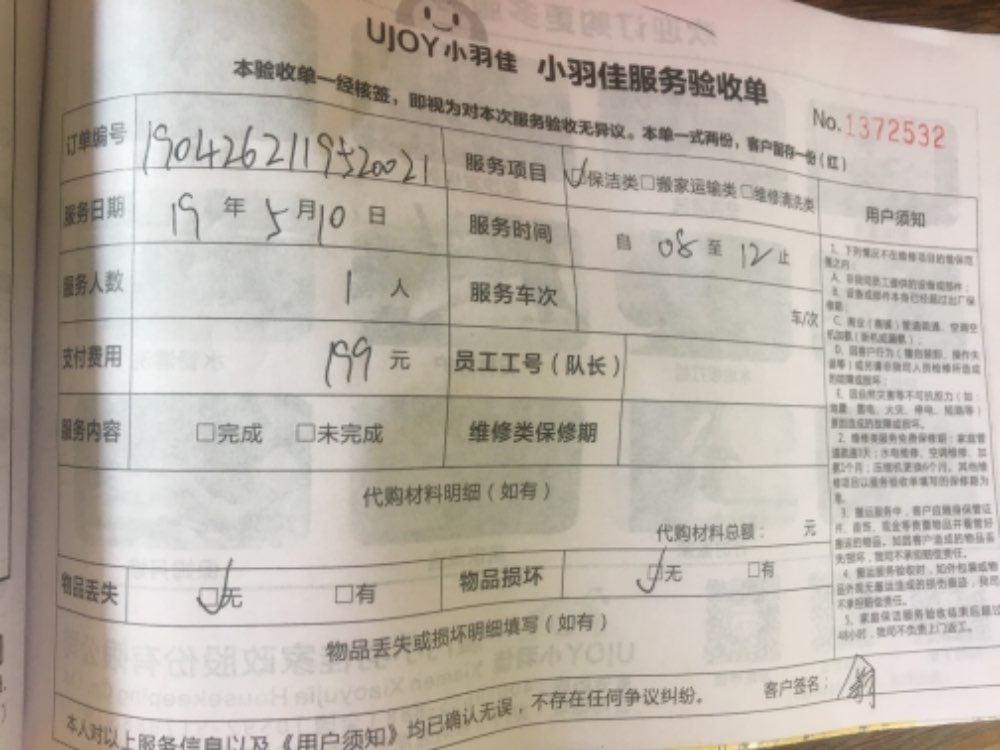 UJOY小羽佳 小羽佳服务验收单
本验收单一经核签，即视为对本次服务验收无异议。本单一式两份，客户留存一份（红）
No.1372532
订单编号 1904262119520021 服务项目 □保洁类□搬家运输类□维修清洗类
服务日期 19 年 5 月 10 日 服务时间 自 08 至 12 止
服务人数 1 人 服务车次 车/次
支付费用 199 元 员工工号（队长）
服务内容 □完成 □未完成 维修类保修期
代购材料明细（如有）
代购材料总额： 元
物品丢失 □无 □有 物品损坏 □无 □有
物品丢失或损坏明细填写（如有）
本人对以上服务信息以及《用户须知》均已确认无误，不存在任何争议纠纷。
客户签名：
用户须知
1、下列情况不在维修项目的维保范围之内：
A、非我司员工提供的设备或部件；
B、设备或部件本身已经超过出厂保修期；
C、商业（商铺）管道疏通、空调空机加氨（新机或漏氨）；
D、因客户行为（擅自装卸、操作失误等）或另请非我司人员检修所造成的故障或损坏；
E、因自然灾害等不可抗原力（如：地震、雷电、火灾、停电、短路等）原因造成的故障或损坏。
2、维修类服务免费保修期：家庭管道疏通7天；水电维修、空调维修、加氨
3、搬运服务中，客户应随身保管证件、首饰、现金等贵重物品并看管好
4、搬运服务验收时，如外包装或物品外观无搬运造成的损伤痕迹，我司不承担赔偿责任。
5、家庭保洁服务验收结束后超过48小时，我司不负责上门返工。